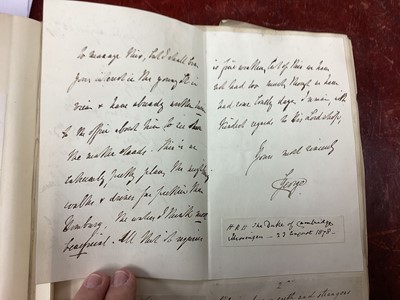 to manage this, but I shall bear
your interest in this young
view & have already written
to the office about him to see how
the matter stands. This is an
extremely pretty place, the neighbg
walks & drives far prettier than
Homburg. The waters I think most
beneficial. All that is required
is fine weather, but of this we have
not had too much, though we have
had some lovely days. I remain, with
kindest regards to His Lordship,
Yours most sincerely
George
H R H The Duke of Cambridge,
23 August 1878.
2